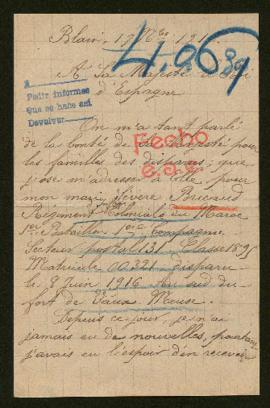 Blain, 17 9bre 191
A Sa Majesté le Roi
d'Espagne
Pedir informes
Que se hans asi
Devolver
On m'a tant parlé
de la bonté de Majesté pour
les familles des disparus, que
j'ose m'adresser à Elle, pour
mon mari, Sévère Bricaud
Fecho
Régiment Colonial du Maroc
1er Bataillon 1ere Compagnie
Secteur postal 131, Classe 1895
Matricule disparu
le 8 juin 1916 Au sud du
fort de Vaux Meuse.
Depuis ce jour, je n'ai
jamais eu de nouvelles, pourtant
j'avais eu l'espoir d'en recevoir